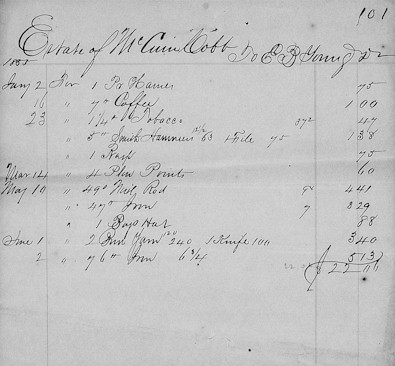 101
Estate of McCuin Cobb To E B Young Dr
1865
Jany 2 For 1 Pr Hames 75
16 " 7 " Coffee 1 00
23 " 1 1/4 " Tobacco 37 1/2 47
" 5 " Smith Hammers 12 1/2 63 1 File 75 1 38
" 1 Rasp 75
Mar 14 " 4 Plow Points 60
May 10 " 49 " Nail Rod 9 4 41
" 47 " Iron 7 3 29
" 1 Boys Hat 88
June 1 " 2 Bun Yarn 120 240 1 Knife 100 3 40
2 " 76 " Iron 6 3/4 5 13
$ 22